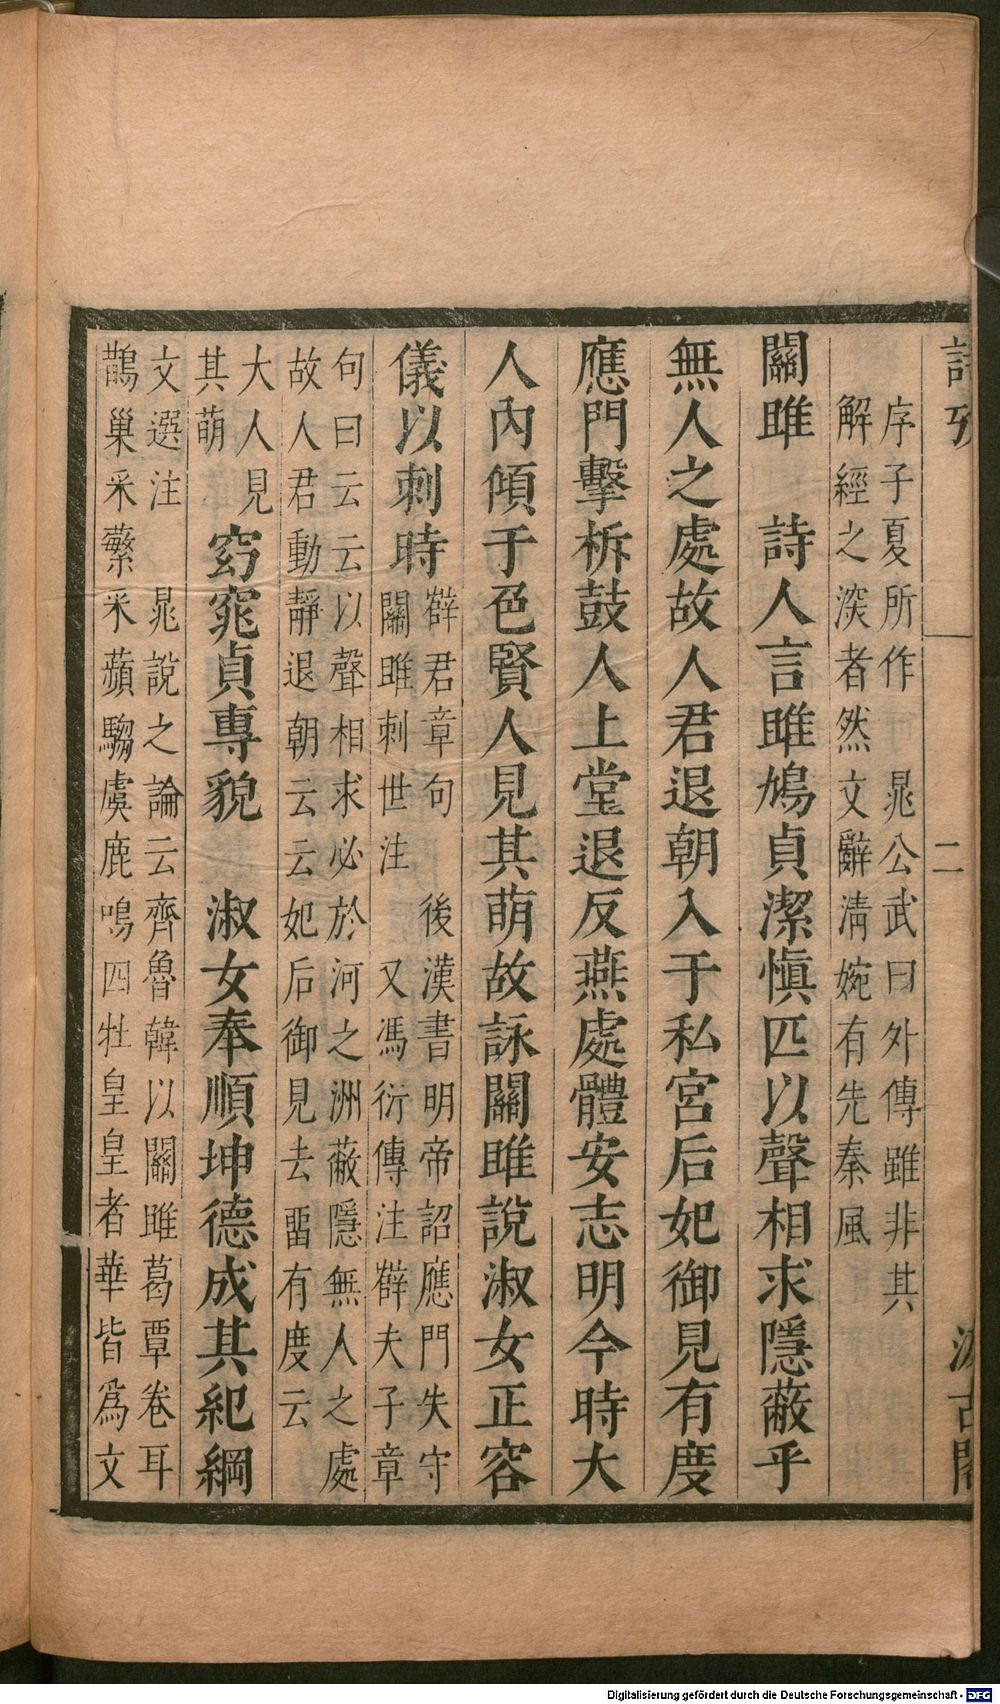 詩攷 二 汲古閣
序子夏所作 晁公武曰外傳雖非其
解經之深者然文辭清婉有先秦風
關雎 詩人言雎鳩貞潔慎匹以聲相求隱蔽乎
無人之處故人君退朝入于私宮后妃御見有度
應門擊柝鼓人上堂退反燕處體安志明今時大
人內傾于色賢人見其萌故詠關雎說淑女正容
儀以刺時
薛君章句 後漢書明帝詔應門失守
關雎刺世注 又馮衍傳注薛夫子章
句曰云云以聲相求必於河之洲蔽隱無人之處
故人君動靜退朝云云妃后御見去畱有度云
大人見
其萌
窈窕貞專貌 淑女奉順坤德成其紀綱
文選注 晁說之論云齊魯韓以關雎葛覃卷耳
鵲巢采蘩采蘋騶虞鹿鳴四牡皇皇者華皆爲文
Digitalisierung gefördert durch die Deutsche Forschungsgemeinschaft - DFG